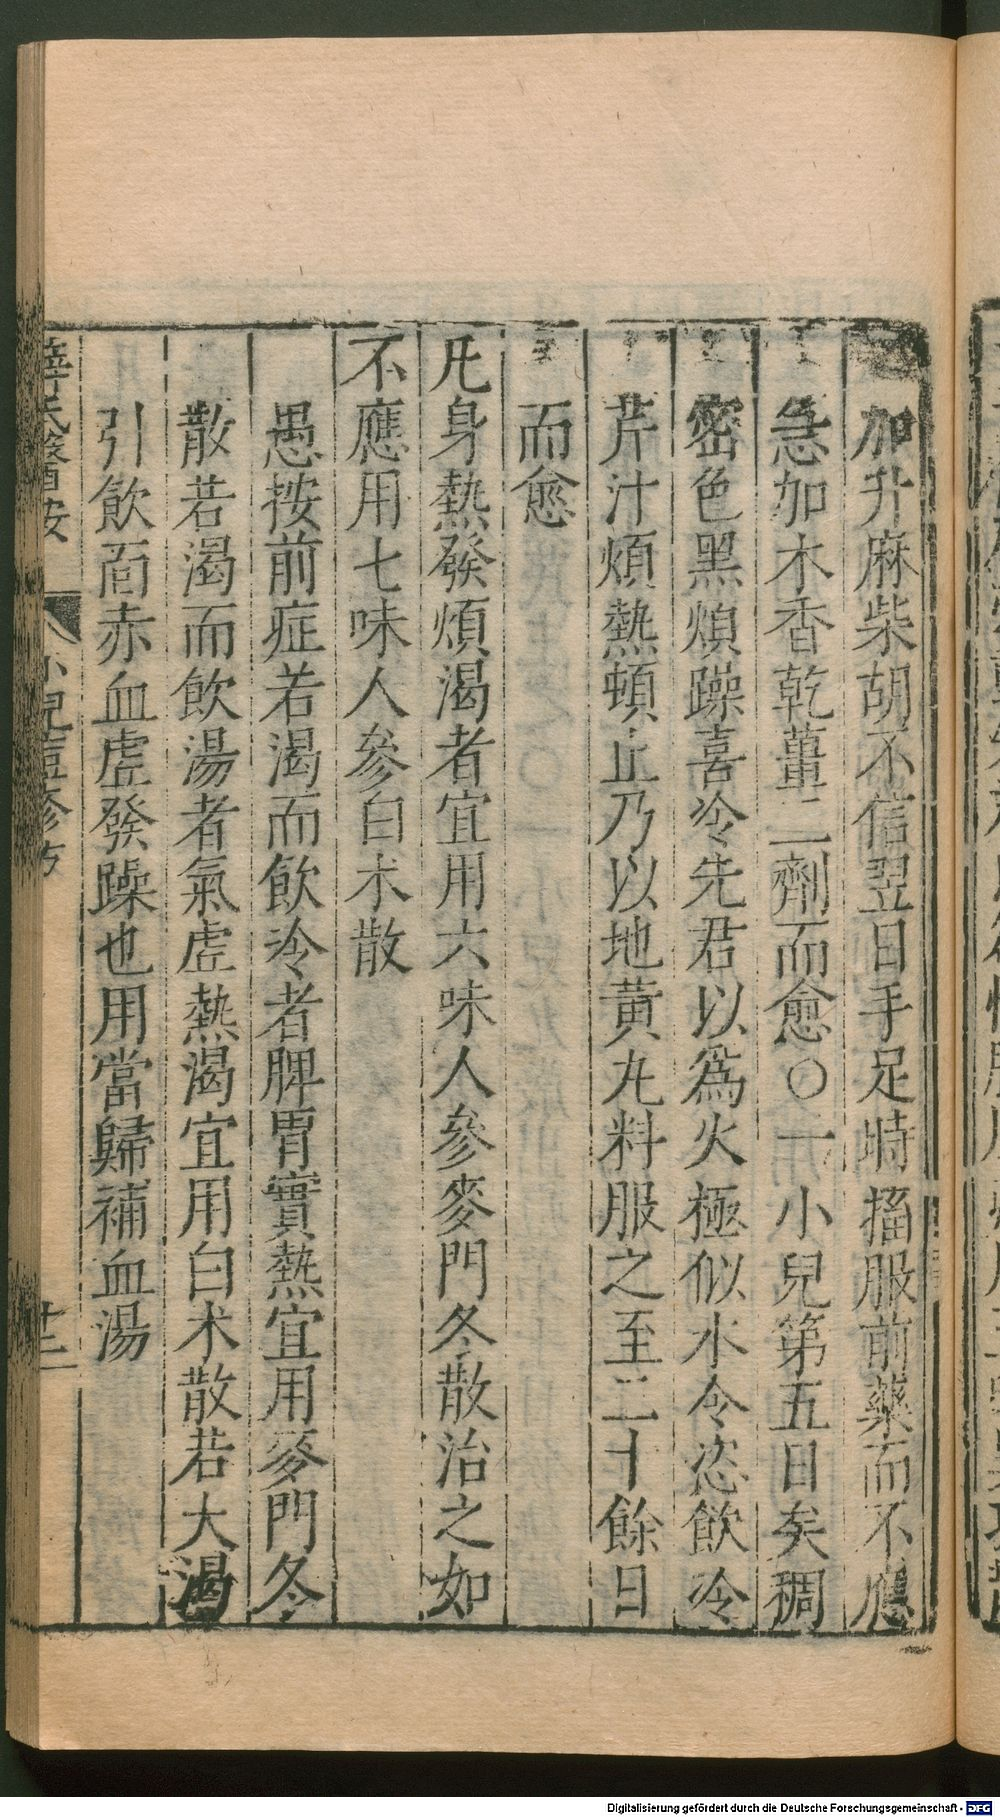 加升麻柴胡不信翌日手足時搐服前藥而不應
急加木香乾薑二劑而愈〇一小兒第五日矣稠
密色黑煩躁喜冷先君以爲火極似水令恣飲冷
芹汁煩熱頓止乃以地黃丸料服之至二十餘日
而愈
凡身熱發煩渴者宜用六味人參麥門冬散治之如
不應用七味人參白朮散
愚按前症若渴而飲冷者脾胃實熱宜用麥門冬
散若渴而飲湯者氣虛熱渴宜用白朮散若大渴
引飲面赤血虛發躁也用當歸補血湯
薛氏醫按
小兒痘疹方
十二
Digitalisierung gefördert durch die Deutsche Forschungsgemeinschaft - DFG